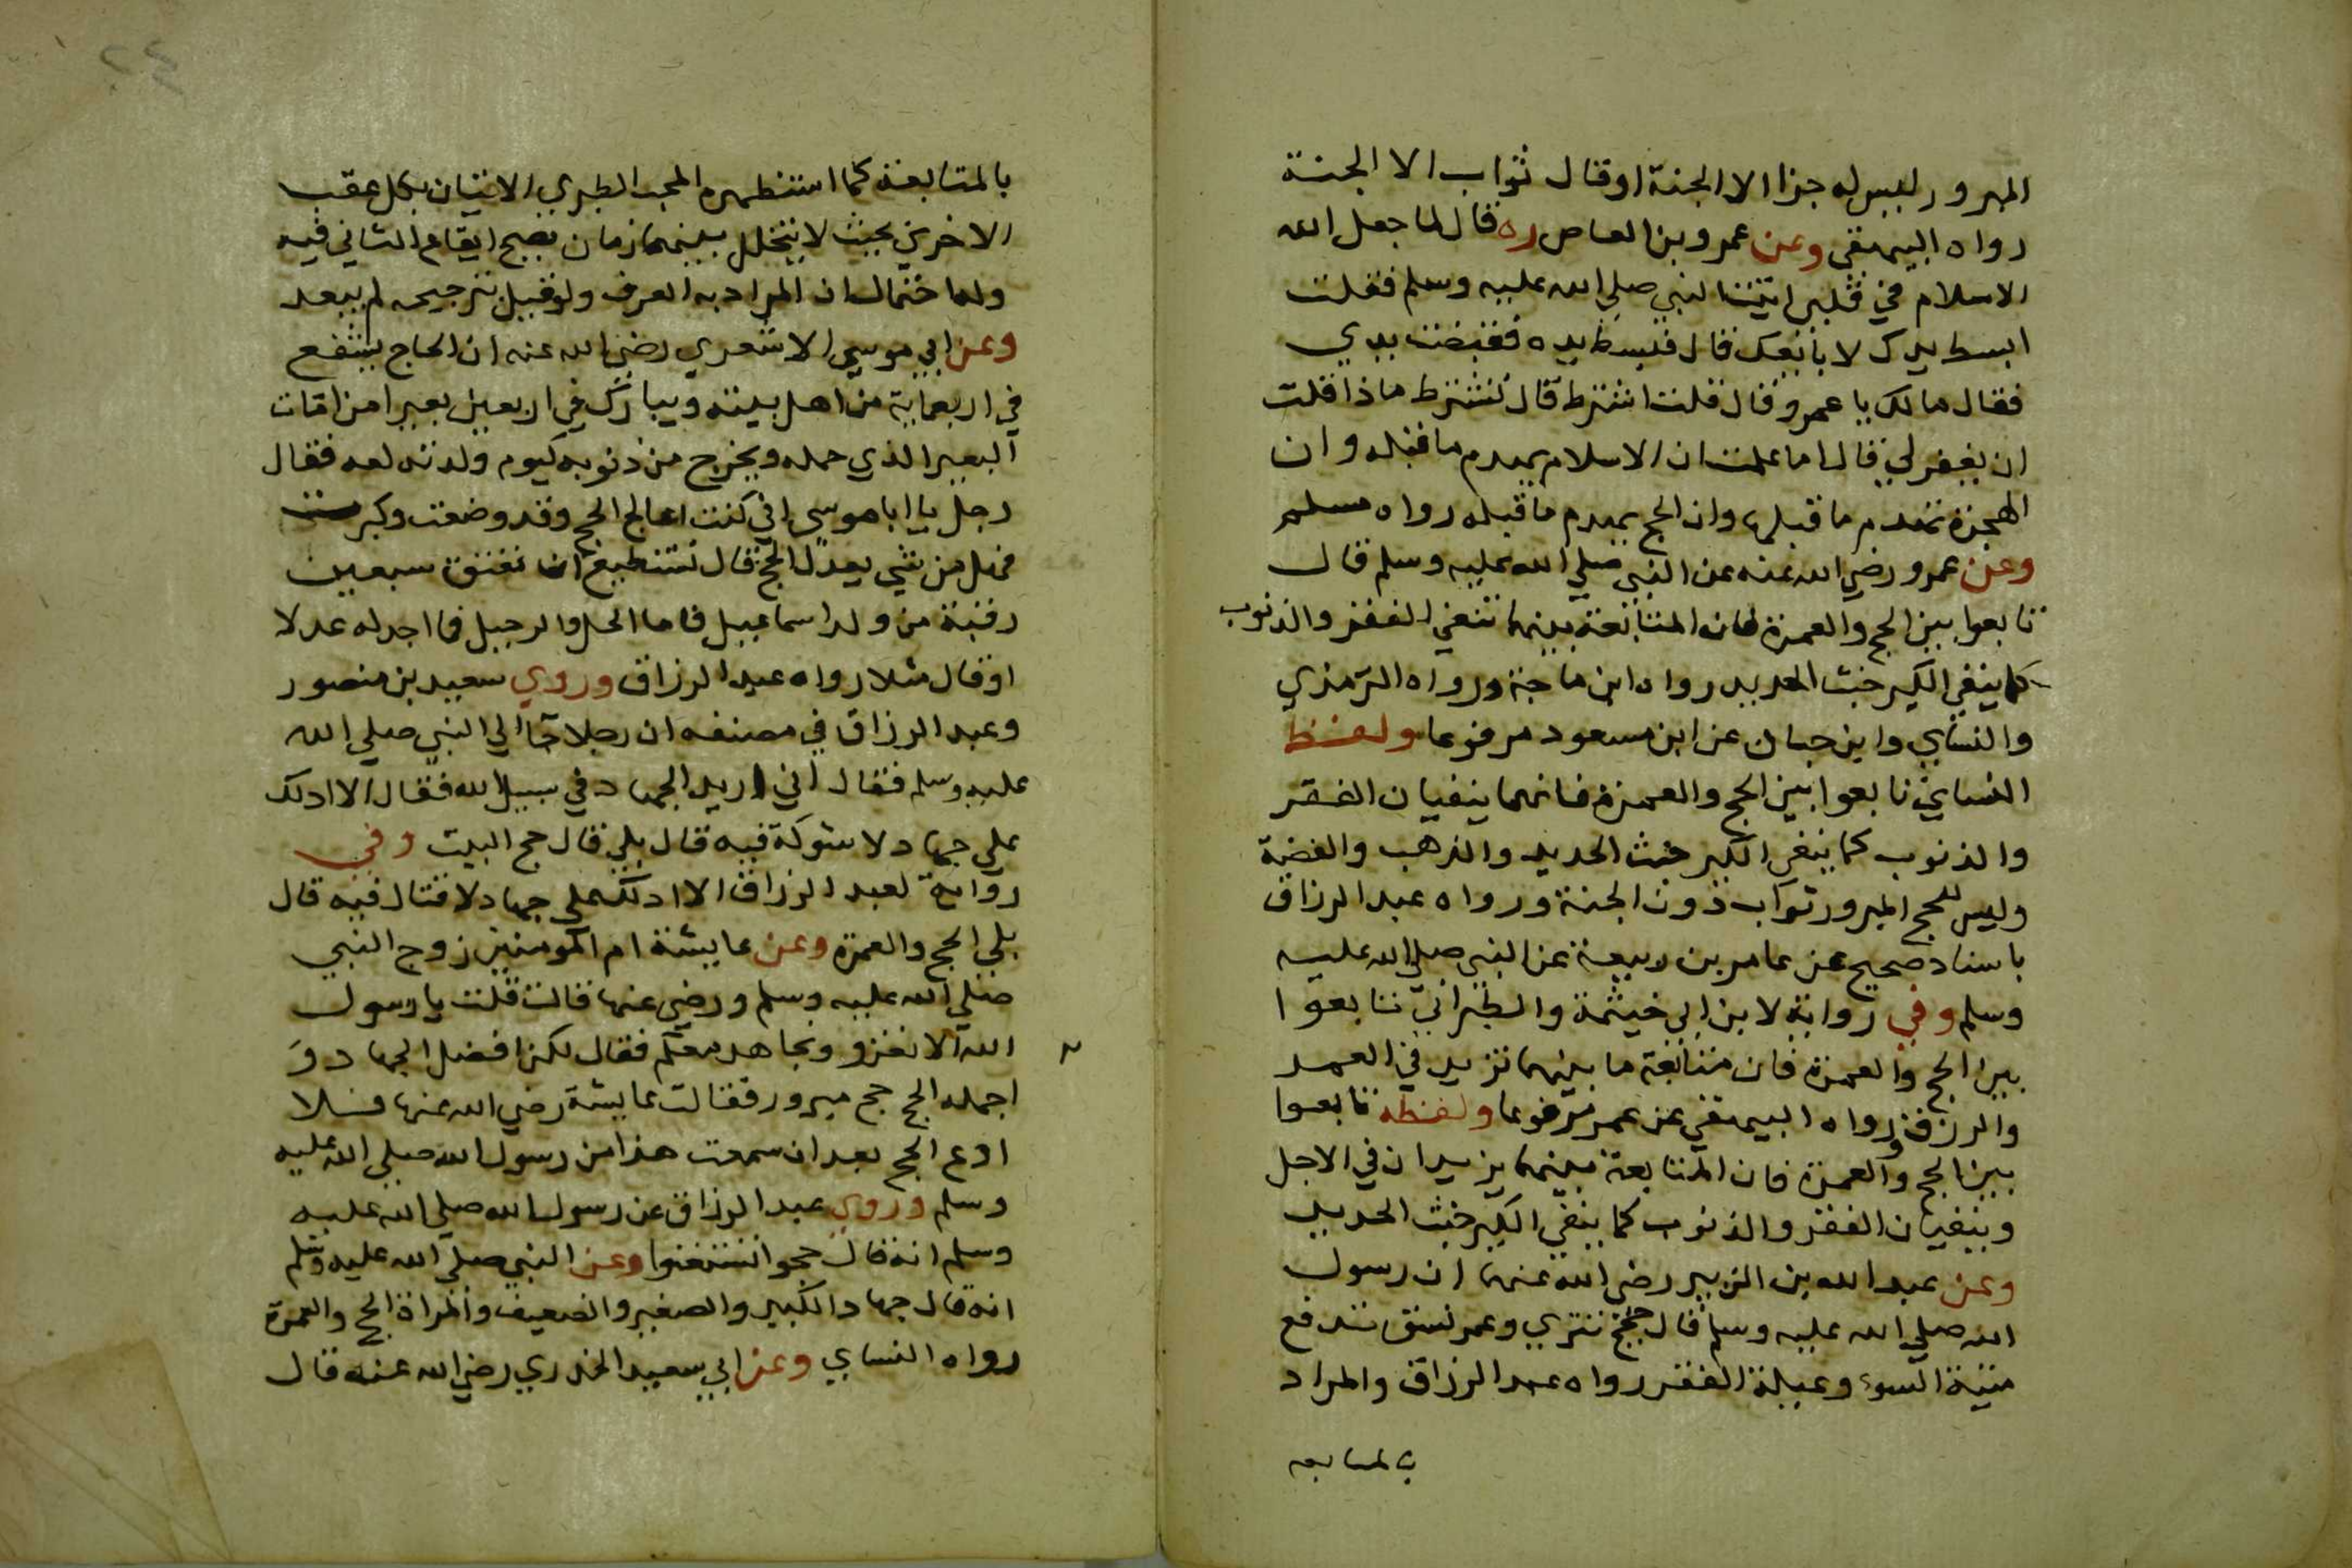 المبرور ليس له جزا الا الجنة او قال ثواب الا الجنة
رواه البيهقي وعن عمرو بن العاص ره قال لما جعل الله
الاسلام في قلبي اتيت النبي صلي الله عليه وسلم فقلت
ابسط يدك لابايعك قال فبسط يده فقبضت يدي
فقال مالك يا عمرو قال قلت اشترط قال تشترط ماذا قلت
ان يغفر لي قال اما علمت ان الاسلام يهدم ما قبله وان
الهجرة تهدم ما قبلها وان الحج يهدم ما قبله رواه مسلم
وعن عمر ورضي الله عنه عن النبي صلي الله عليه وسلم قال
تابعوا بين الحج والعمرة فان المتابعة بينهما تنفي الفقر والذنوب
كما ينفي الكير خبث الحديد رواه ابن ماجة ورواه الترمذي
والنساي وابن حبان عن ابن مسعود مرفوعا ولفظ
النساي تابعوا بين الحج والعمرة فانهما ينفيان الفقر
والذنوب كما ينفي الكير خبث الحديد والذهب والفضة
وليس للحج المبرور ثواب دون الجنة ورواه عبد الرزاق
باسناد صحيح عن عامر بن ربيعة عن النبي صلي الله عليه
وسلم وفي رواية لابن ابي خيثمة والطبراني تابعوا
بين الحج والعمرة فان متابعة ما بينهما تزيد في العمر
والرزق ورواه البيهقي عن عمر مرفوعا ولفظه تابعوا
بين الحج والعمرة فان المتابعة بينهما يزيدان في الاجل
وينفيان الفقر والذنوب كما ينفي الكير خبث الحديد
وعن عبد الله بن الزبير رضي الله عنهما ان رسول
الله صلي الله عليه وسلم قال حجج تتري وعمر نسق تدفع
ميتة السوء وعيلة الفقر رواه عبد الرزاق والمراد
بالمتابعه
٢٤
بالمتابعة كما استظهره المحب الطبري الاتيان بكل عقب
الاخري بحيث لا يتخلل بينهما زمان يصح ايقاع الثاني فيه
وله احتمال ان المراد به العرف ولو قيل بترجيحه لم يبعد
وعن ابي موسي الاشعري رضي الله عنه ان الحاج يشفع
في اربعماية من اهل بيته ويبارك في اربعين بعيرا من امات
البعير الذي حمله ويخرج من ذنوبه كيوم ولدته امه فقال
رجل يا ابا موسي اني كنت اعالج الحج وقد وضعت وكبرت
فهل من شي يعدل الحج قال تستطيع ان تعتق سبعين
رقبة من ولد اسماعيل فاما الحل والرحيل فما اجد له عدلا
او قال مثلا رواه عبد الرزاق وروي سعيد بن منصور
وعبد الرزاق في مصنفه ان رجلا جا الي النبي صلي الله
عليه وسلم فقال اني اريد الجهاد في سبيل الله فقال الا ادلك
علي جهاد لا شوكة فيه قال بلي قال حج البيت وفي
رواية لعبد الرزاق الا ادلك علي جهاد لا قتال فيه قال
بلي الحج والعمرة وعن عايشة ام المومنين زوج النبي
صلي الله عليه وسلم ورضي عنها قالت قلت يا رسول
الله الا نغزو ونجاهد معكم فقال لكن افضل الجهاد و
اجمله الحج حج مبرور فقالت عايشة رضي الله عنها فلا
ادع الحج بعد ان سمعت هذا من رسول الله صلي الله عليه
وسلم وروي عبد الرزاق عن رسول الله صلي الله عليه
وسلم انه قال حجوا تستغنوا وعن النبي صلي الله عليه وسلم
انه قال جهاد الكبير والصغير والضعيف والمراة الحج والعمرة
رواه النساي وعن ابي سعيد الخدري رضي الله عنه قال